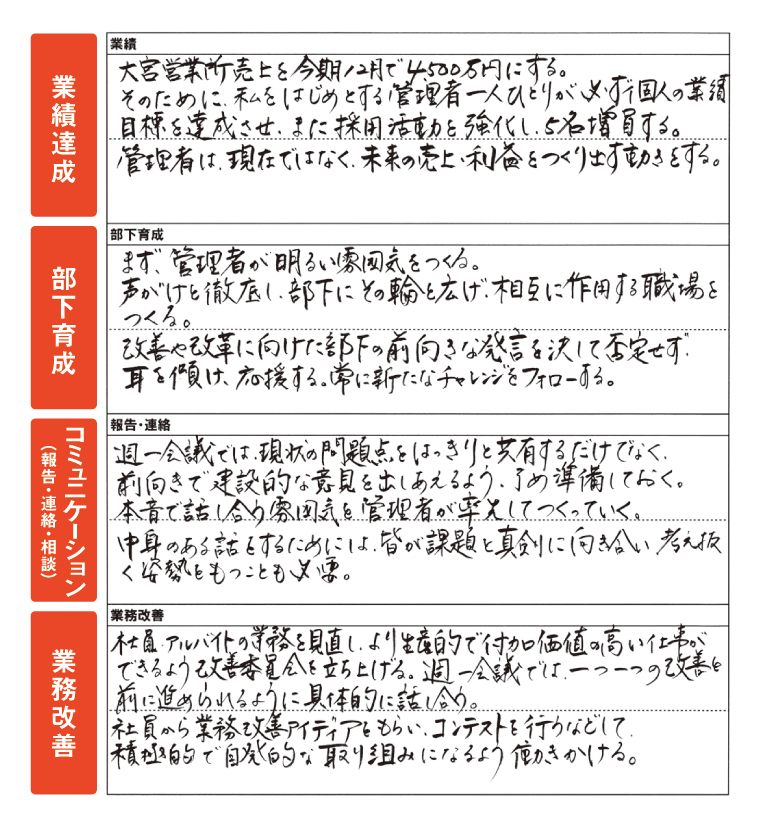 業績達成
業績
大宮営業所売上を今期12月で4,500万円にする。
そのために、私をはじめとする管理者一人ひとりが、必ず個人の業績
目標を達成させ、また採用活動を強化し、5名増員する。
管理者は、現在ではなく、未来の売上・利益をつくり出す動きをする。
部下育成
部下育成
まず、管理者が明るい雰囲気をつくる。
声がけを徹底し、部下にその輪を広げ、相互に作用する職場を
つくる。
改善や改革に向けた部下の前向きな発言を決して否定せず、
耳を傾け、応援する。常に新たなチャレンジをフォローする。
コミュニケーション
（報告・連絡・相談）
報告・連絡
週一会議では、現状の問題点をはっきりと共有するだけでなく、
前向きで建設的な意見を出しあえるよう、予め準備しておく。
本音で話し合う雰囲気を管理者が率先してつくっていく。
中身のある話をするためには、皆が課題と真剣に向き合い、考え抜
く姿勢をもつことも必要。
業務改善
業務改善
社員、アルバイトの業務を見直し、より生産的で付加価値の高い仕事が
できるよう改善委員会を立ち上げる。週一会議では、一つ一つの改善を
前に進められるように具体的に話し合う。
社員から業務改善アイディアをもらい、コンテストを行うなどして、
積極的で自発的な取り組みになるよう働きかける。